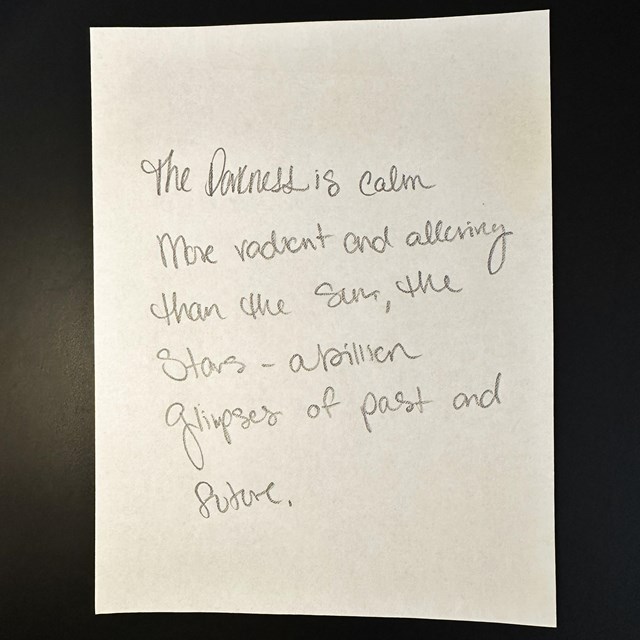 The Darkness is calm
More radient and allering
than the Sun, the
Stars - a billion
glimpses of past and
future.